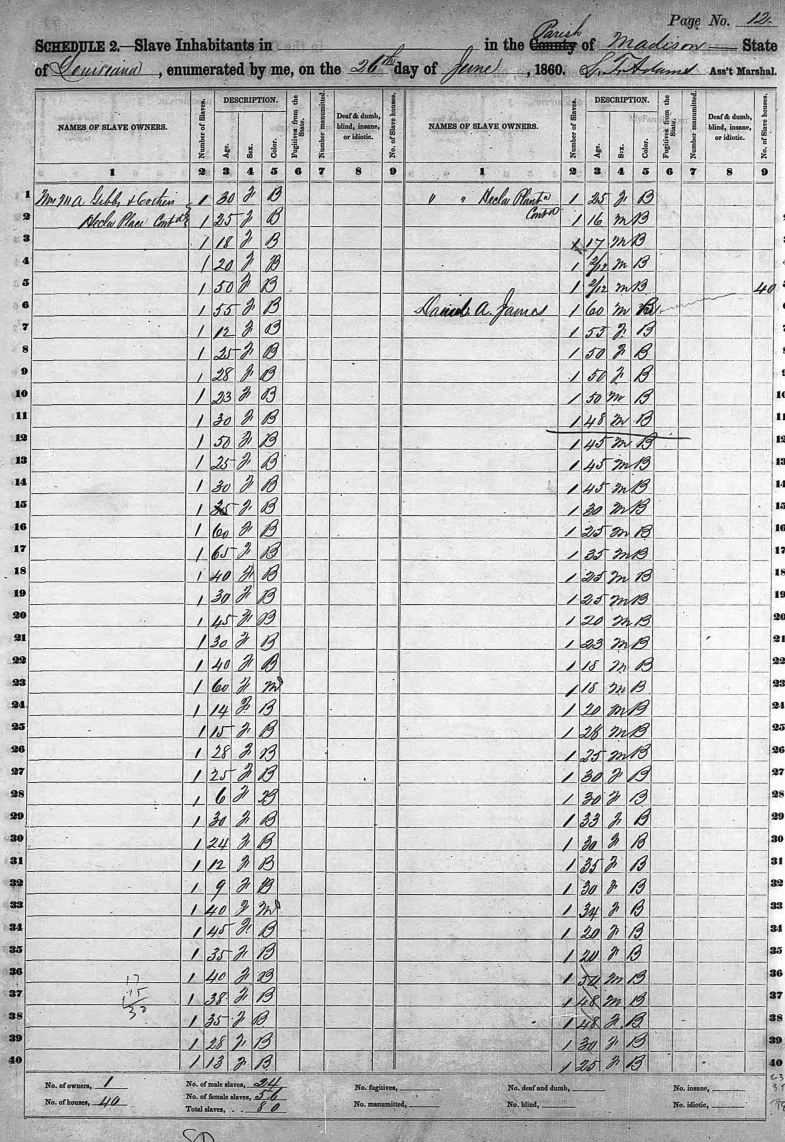 Page No. 12
SCHEDULE 2.—Slave Inhabitants in in the County Parish of Madison State
of Louisiana, enumerated by me, on the 26th day of June, 1860. Ass't Marshal.
NAMES OF SLAVE OWNERS. Number of Slaves. DESCRIPTION. Age. Sex. Color. Fugitives from the State. Number manumitted. Deaf & dumb, blind, insane, or idiotic. No. of Slave houses. NAMES OF SLAVE OWNERS. Number of Slaves. DESCRIPTION. Age. Sex. Color. Fugitives from the State. Number manumitted. Deaf & dumb, blind, insane, or idiotic. No. of Slave houses.
1 2 3 4 5 6 7 8 9 1 2 3 4 5 6 7 8 9
1 M A Gibbs & 1 30 F B " " Hecla 1 25 F B
2 Hecla Place Cont'd 1 25 F B Cont'd 1 16 M B 2
3 1 18 F B 1 17 M B 3
4 1 20 F B 1 2/12 M B 4
5 1 50 F B 1 2/12 M B 40 5
6 1 55 F B Daniel A. James 1 60 M B 6
7 1 12 F B 1 55 F B 7
8 1 25 F B 1 50 F B 8
9 1 28 F B 1 50 F B 9
10 1 23 F B 1 50 M B 10
11 1 30 F B 1 48 M B 11
12 1 50 F B 1 45 M B 12
13 1 25 F B 1 45 M B 13
14 1 30 F B 1 45 M B 14
15 1 35 F B 1 30 M B 15
16 1 60 F B 1 25 M B 16
17 1 65 F B 1 35 M B 17
18 1 40 F B 1 25 M B 18
19 1 30 F B 1 25 M B 19
20 1 45 F B 1 20 M B 20
21 1 30 F B 1 23 M B 21
22 1 40 F B 1 18 M B 22
23 1 60 F M 1 18 M B 23
24 1 14 F B 1 20 M B 24
25 1 15 F B 1 28 M B 25
26 1 28 F B 1 25 M B 26
27 1 25 F B 1 30 F B 27
28 1 6 F B 1 30 F B 28
29 1 30 F B 1 33 F B 29
30 1 24 F B 1 30 F B 30
31 1 12 F B 1 35 F B 31
32 1 9 F B 1 30 F B 32
33 1 40 F M 1 34 F B 33
34 1 45 F B 1 20 F B 34
35 1 35 F B 1 20 F B 35
36 1 40 F B 1 50 M B 36
37 1 38 F B 1 48 M B 37
38 1 35 F B 1 48 F B 38
39 1 28 F B 1 30 F B 39
40 1 13 F B 1 25 F B 40
17
15
No. of owners, 1 No. of male slaves, 24 No. fugitives, No. deaf and dumb, No. insane,
No. of houses, 40 No. of female slaves, 56 No. manumitted, No. blind, No. idiotic,
Total slaves, 80